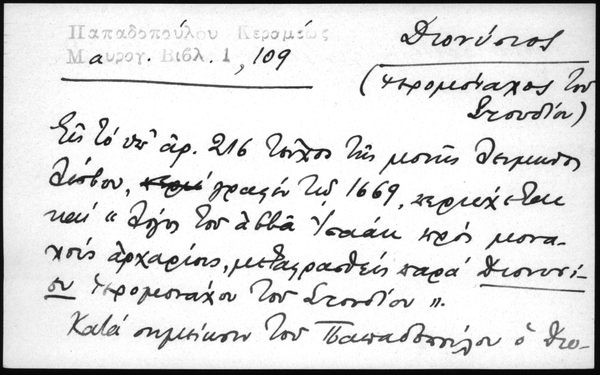 Παπαδοπούλου Κεραμέως
Μαυρογ. Βιβλ. 1, 109
Διονύσιος
(ἱερομόναχος τοῦ
Στουδίου)
Εἰς τό ὑπ' ἀρ. 216 τεῦχος τῆς μονῆς Λειμῶνος
Λέσβου, γραφέν τῷ 1669, περιέχεται
καί "Λόγος τοῦ ἀββᾶ Ἰσαάκ πρός μονα-
χούς ἀρχαρίους, μεταφρασθείς παρά Διονυσί-
ου ἱερομονάχου τοῦ Στουδίου".
Κατά σημείωσιν τοῦ Παπαδοπούλου ὁ Διο-